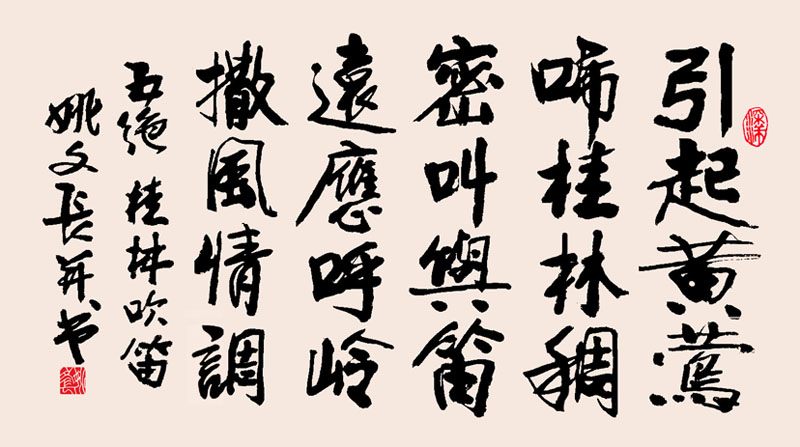 引起黄莺
啼桂林稠
密叫與笛
遠應呼岭
撒風情調
五绝 桂林吹笛
姚文長并书